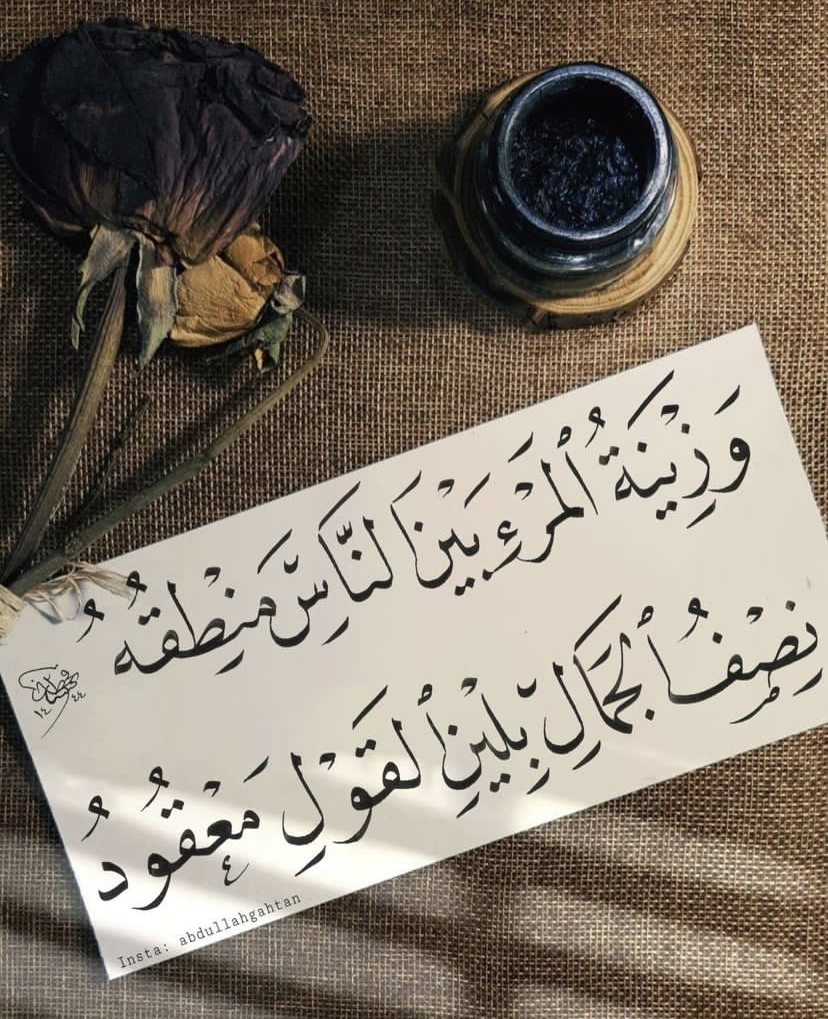 وَزِينَةُ ٱلْمَرْءِ بَيْنَ ٱلنَّاسِ مَنْطِقُهُ
نِصْفُ ٱلْجَمَالِ بِلِينِ ٱلْقَوْلِ مَعْقُودُ
Insta: abdullahgahtan